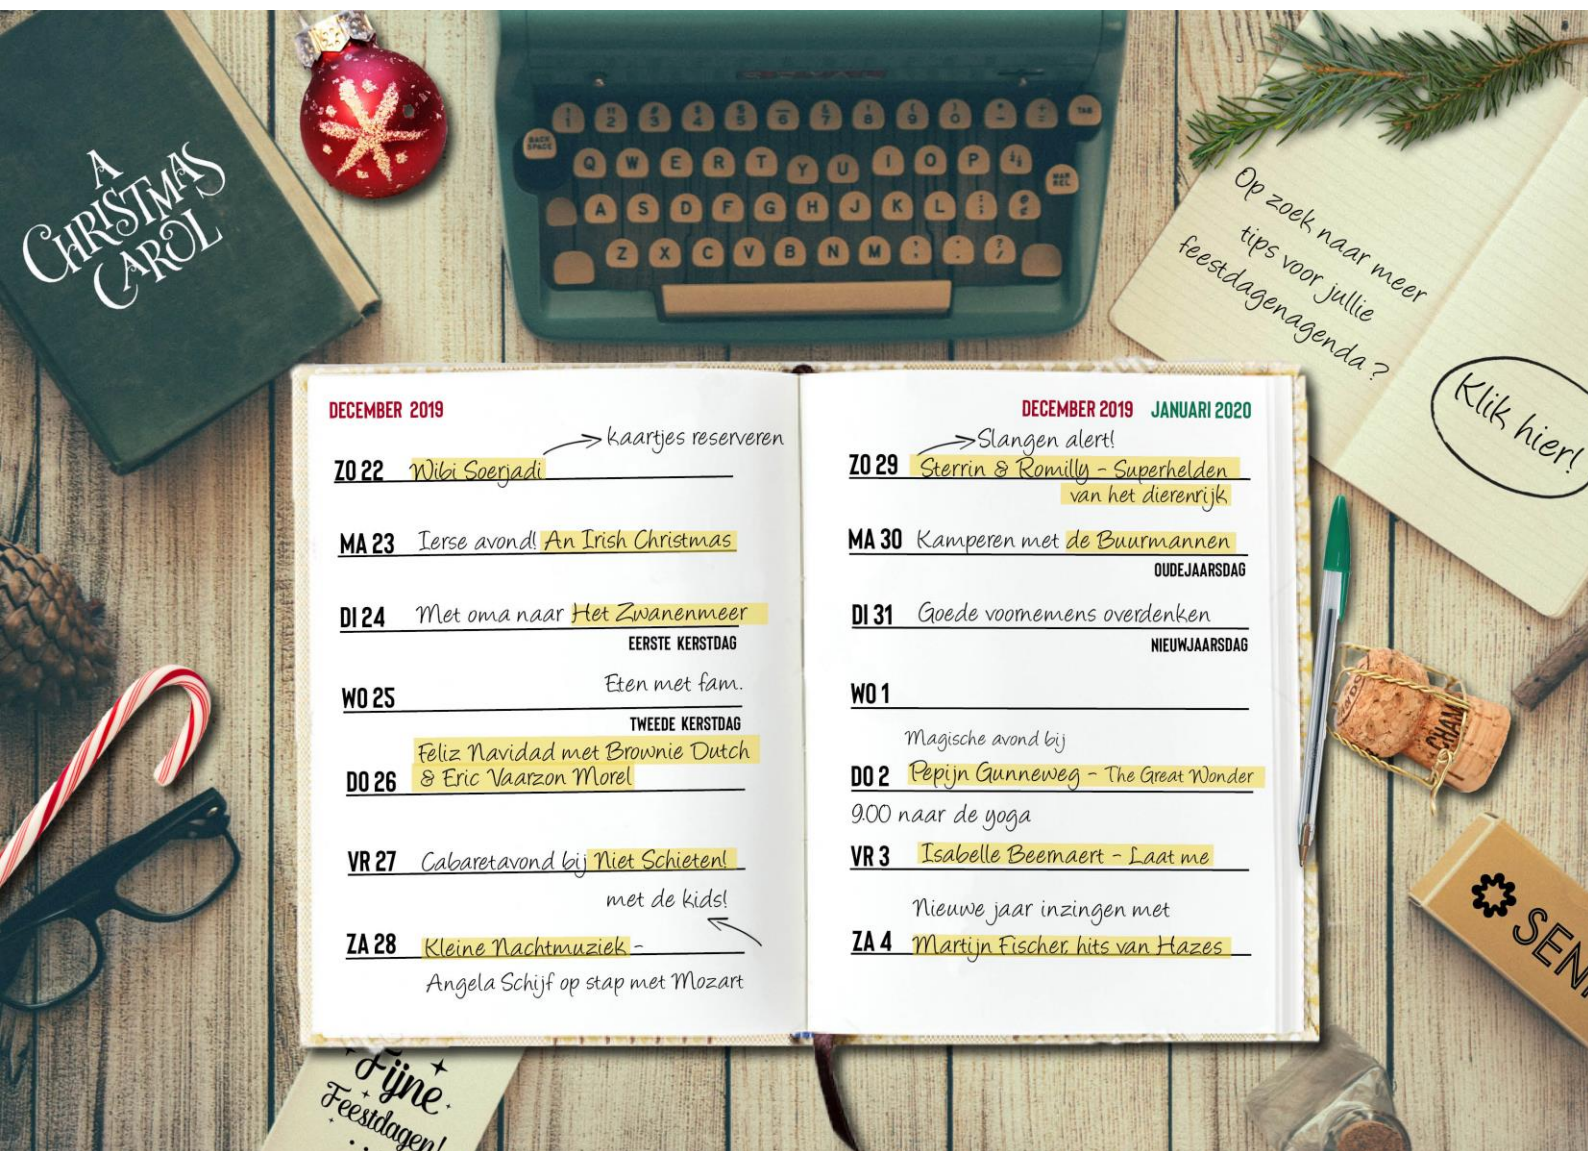 A
CHRISTMAS
CAROL
BACK
SPACE
TAB
MAR
REL
Q W E R T Y U I O P
A S D F G H J K L
Z X C V B N M
Op zoek naar meer
tips voor jullie
feestdagenagenda?
Klik hier!
DECEMBER 2019
kaartjes reserveren
ZO 22 Wibi Soerjadi
MA 23 Ierse avond! An Irish Christmas
DI 24 Met oma naar Het Zwanenmeer
EERSTE KERSTDAG
Eten met fam.
WO 25
TWEEDE KERSTDAG
Feliz Navidad met Brownie Dutch
DO 26 & Eric Vaarzon Morel
VR 27 Cabaretavond bij Niet Schieten!
met de kids!
ZA 28 Kleine Nachtmuziek -
Angela Schijf op stap met Mozart
DECEMBER 2019 JANUARI 2020
Slangen alert!
ZO 29 Sterrin & Romilly - Superhelden
van het dierenrijk
MA 30 Kamperen met de Buurmannen
OUDEJAARSDAG
DI 31 Goede voornemens overdenken
NIEUWJAARSDAG
WO 1
Magische avond bij
DO 2 Pepijn Gunneweg - The Great Wonder
9.00 naar de yoga
VR 3 Isabelle Beernaert - Laat me
Nieuwe jaar inzingen met
ZA 4 Martijn Fischer, hits van Hazes
CHAM
Fijne
Feestdagen!